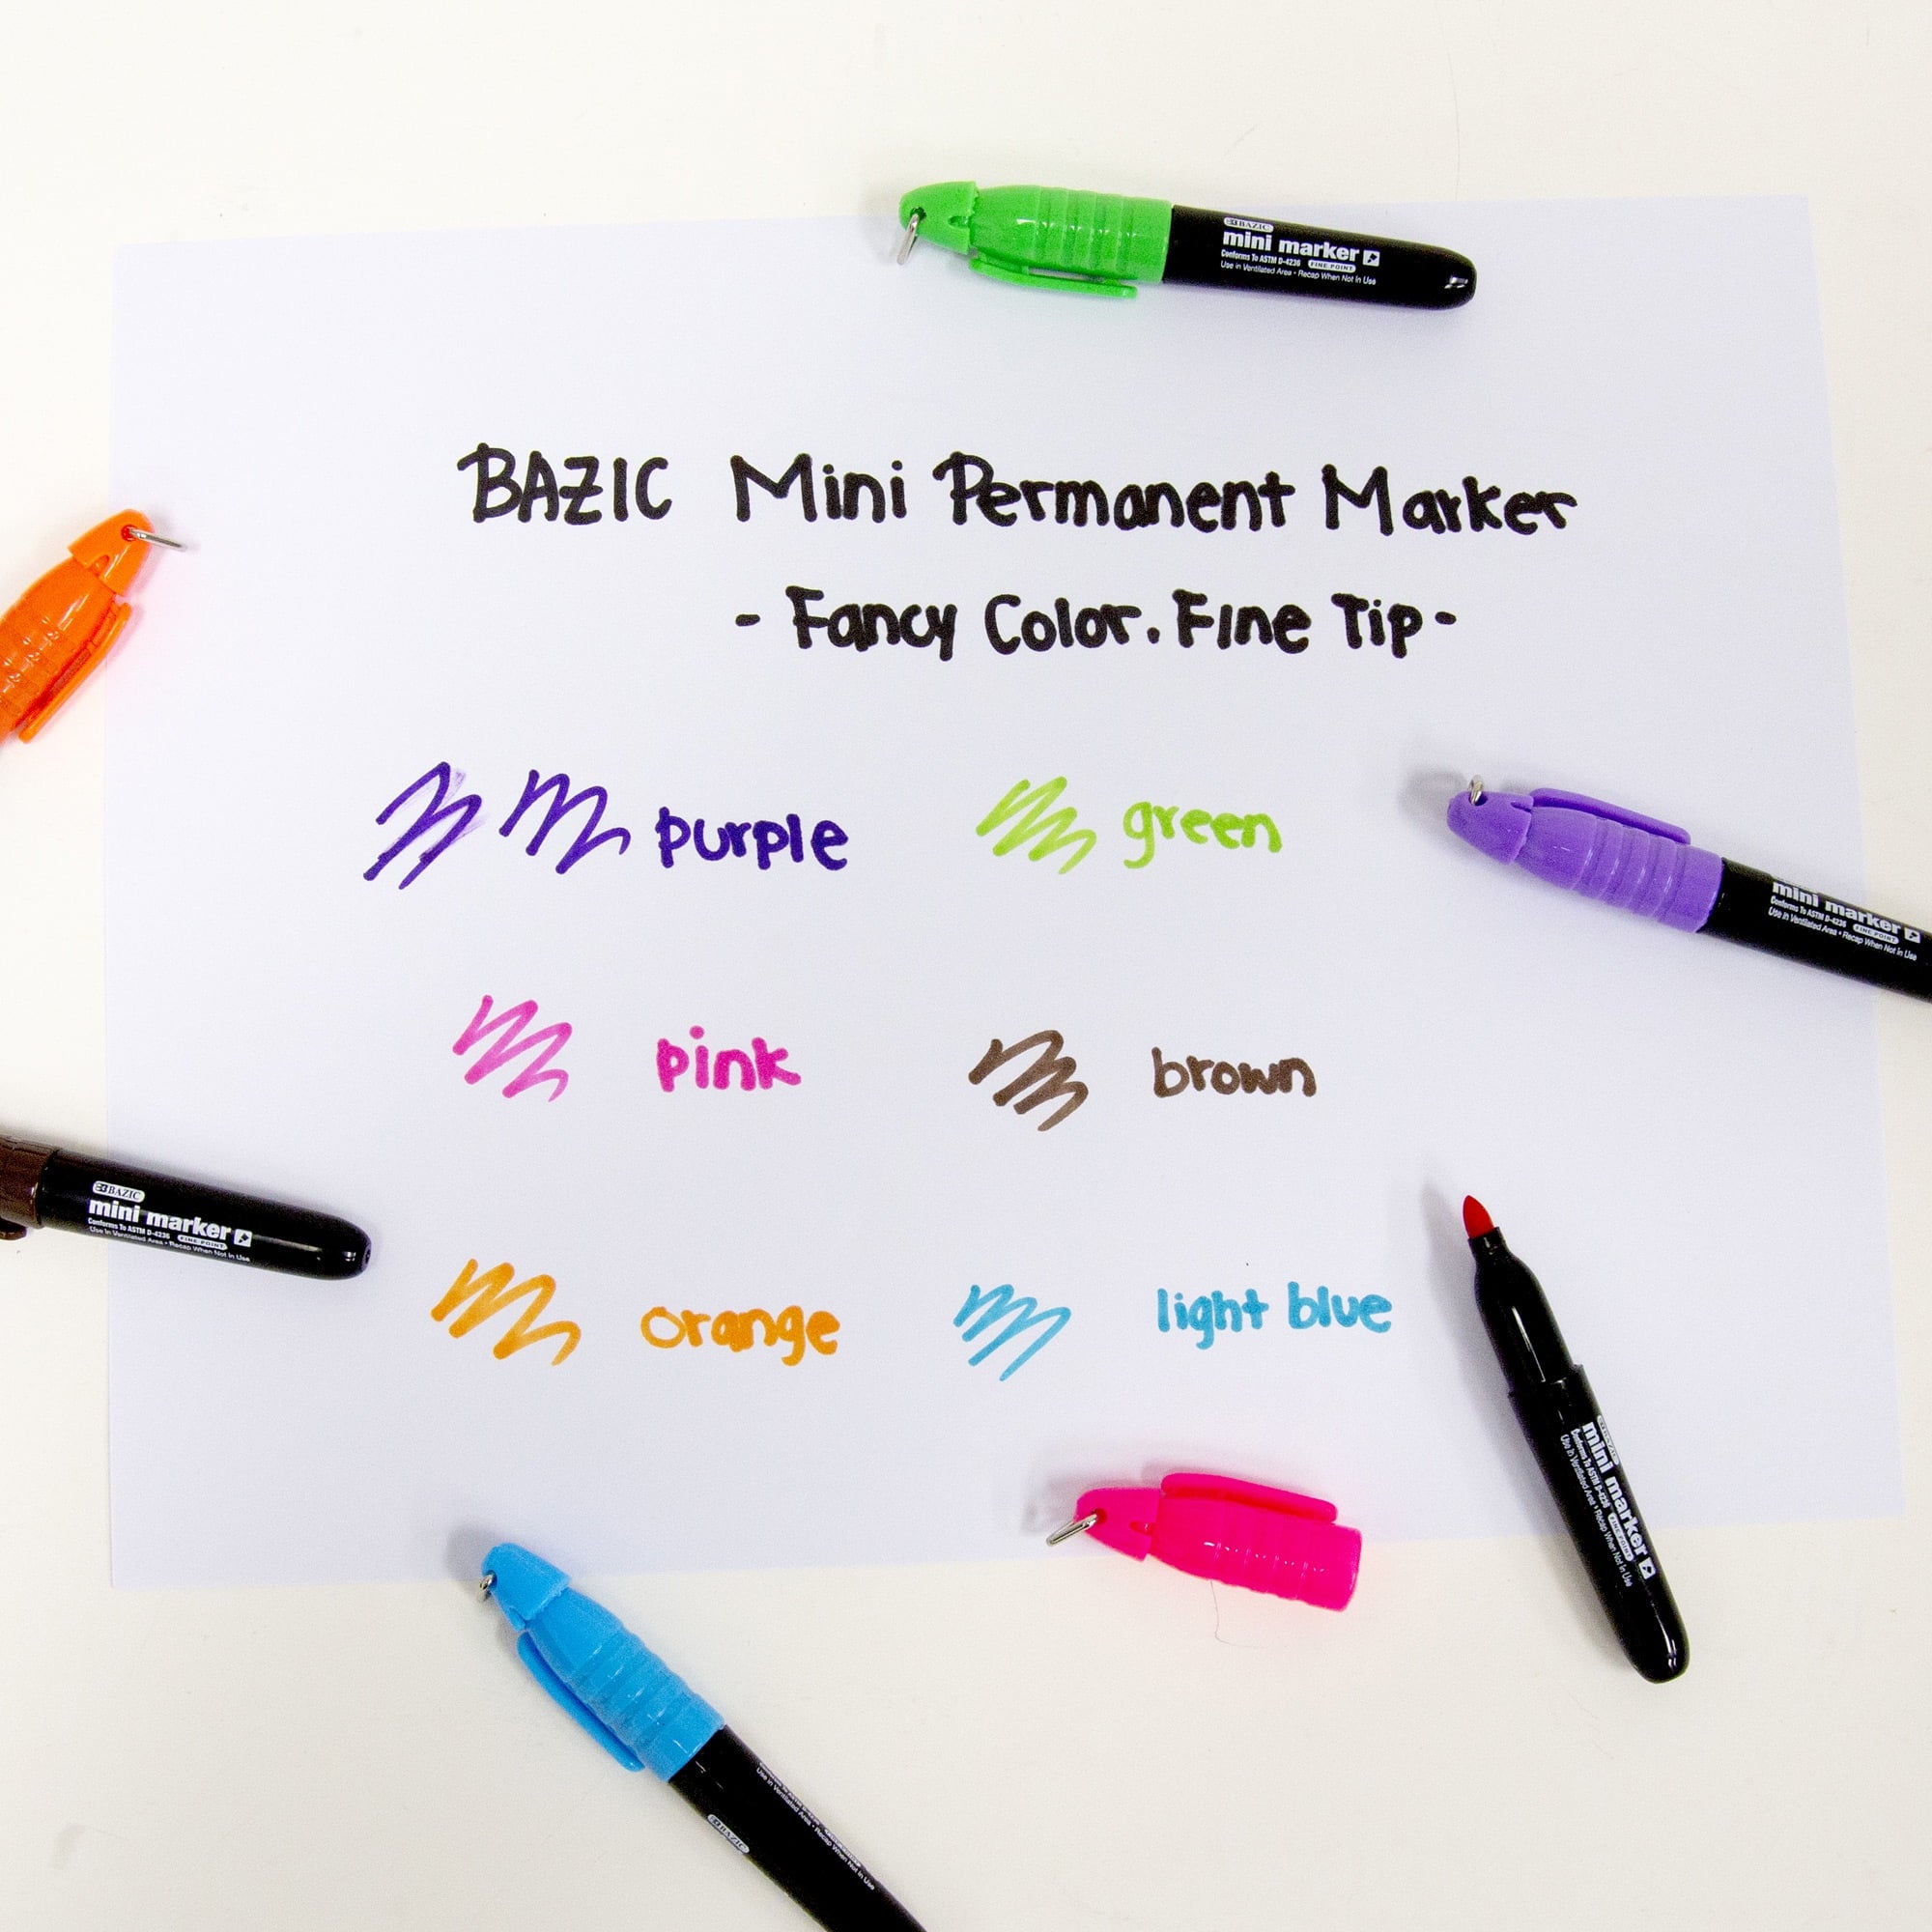 BAZIC
mini marker
Conforms To ASTM D-4236 FINE POINT
Use in Ventilated Area • Recap When Not in Use
BAZIC Mini Permanent Marker
- Fancy Color. Fine Tip -
purple green
mini marker
Conforms To ASTM D-4236 FINE POINT
Use in Ventilated Area • Recap When Not in Use
pink brown
BAZIC
mini marker
Conforms To ASTM D-4236 FINE POINT
Use in Ventilated Area • Recap When Not in Use
orange light blue
BAZIC
mini marker
Conforms To ASTM D-4236 FINE POINT
Use in Ventilated Area • Recap When Not in Use
Use in Ventilated Area • Recap When Not in Use
BAZIC